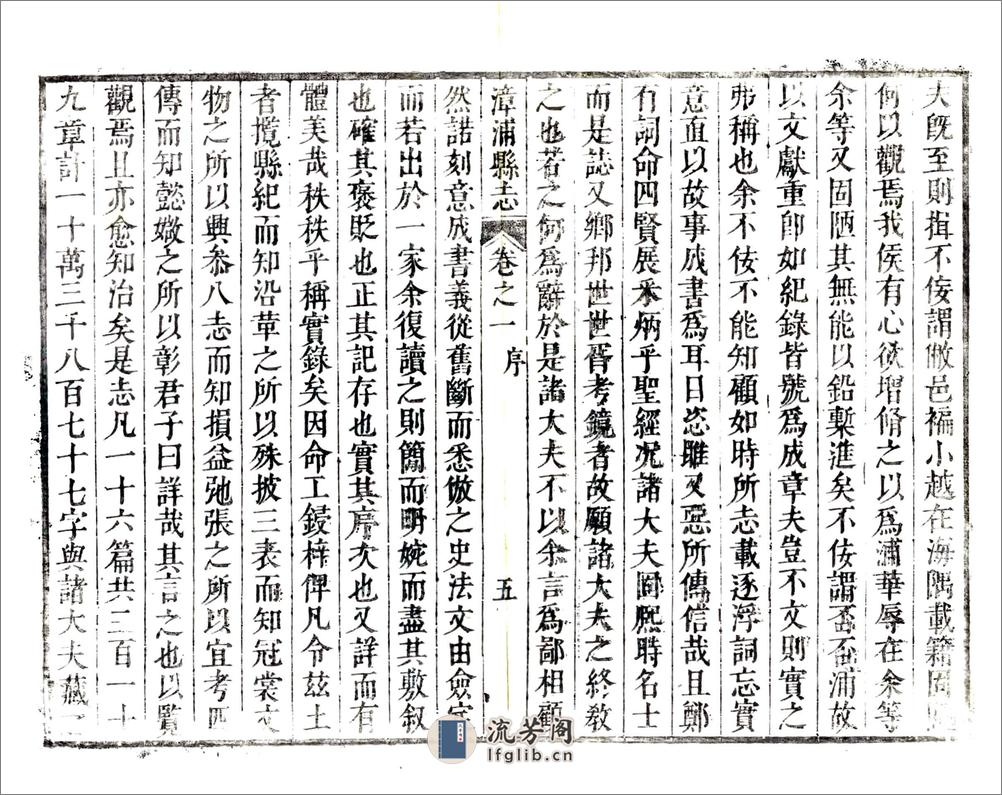 夫旣至則揖不佞謂敝邑褊小越在海隅載籍罔
何以觀焉我侯有心欲增脩之以爲浦華辱在余等
余等又固陋其無能以鉛槧進矣不佞謂否否浦故
以文獻重卽如紀錄皆號爲成章夫豈不文則實之
弗稱也余不佞不能知顧如時所志載逐浮詞忘實
意直以故事成書爲耳日恣雕又惡所傳信哉且鄭
有詞命四賢展釆炳乎聖經况諸大夫固熈時名士
而是誌又鄉邦世世胥考鏡者故願諸大夫之終敎
之也若之何爲辭於是諸大夫不以余言爲鄙相顧
漳浦縣志 卷之一 序 五
然諾刻意成書義從舊斷而悉倣之史法文由僉定
而若出於一家余復讀之則簡而明婉而盡其敷叙
也確其褒貶也正其記存也實其序次也又詳而有
體美哉秩秩乎稱實錄矣因命工鋟梓俾凡令玆土
者攬縣紀而知沿革之所以殊披三表而知冠裳文
物之所以興叅八志而知損益弛張之所以宜考四
傳而知懿媺之所以彰君子曰詳哉其言之也以覽
觀焉且亦愈知治矣是志凡一十六篇共三百一十
九章計一十萬三千八百七十七字與諸大夫藏
流芳阁
lfglib.cn